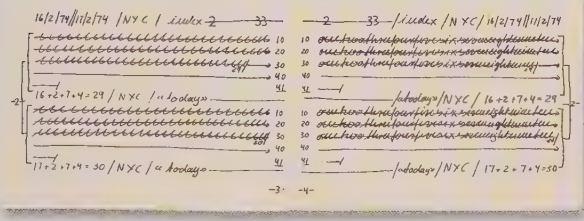 16/2/74//17/2/74 / NYC / index 2 33
10
20
29/ 30
40
41
16+2+7+4=29 / NYC / "today"
10
20
30/ 30
40
41
17+2+7+4=30 / NYC / "today"
-2-
-3-
2 33 / index / NYC / 16/2/74//17/2/74
10 onetwothreefourfivesixseveneightnineten
20 onetwothreefourfivesixseveneightnineten
30 onetwothreefourfivesixseveneightnine 29/
40
41
/"today" / NYC / 16+2+7+4=29
10 onetwothreefourfivesixseveneightnineten
20 onetwothreefourfivesixseveneightnineten
30 onetwothreefourfivesixseveneightnineten 30/
40
41
/"today" / NYC / 17+2+7+4=30
-2-
-4-